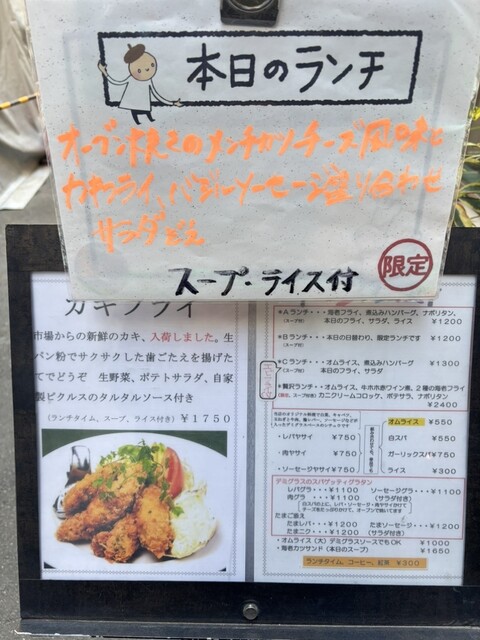 本日のランチ
オーブン焼きのメンチカツチーズ風味と
カキフライ、バジルソーセージ盛り合わせ
サラダ添え
スープ・ライス付
限定
カキフライ
市場からの新鮮のカキ、入荷しました。生
パン粉でサクサクした歯ごたえを揚げた
てでどうぞ 生野菜、ポテトサラダ、自家
製ピクルスのタルタルソース付き
(ランチタイム、スープ、ライス付き) ￥1750
*Aランチ・・・海老フライ、煮込みハンバーグ、ナポリタン、
(スープ付) 本日のフライ、サラダ、ライス ￥1200
*Bランチ・・・本日の日替わり、限定ランチです ￥1200
(スープ付)
*Cランチ・・・オムライス、煮込みハンバーグ ￥1300
(スープ付) 本日のフライ、サラダ
*贅沢ランチ・・オムライス、牛ホホ赤ワイン煮、2種の海老フライ
カニクリームコロッケ、ポテサラ、ナポリタン
￥2400
・レバヤサイ ￥750
・肉ヤサイ ￥750
・ソーセージヤサイ ￥750
オムライス ￥550
白スパ ￥550
ガーリックスパ ￥750
ライス ￥300
デミグラスのスパゲッティグラタン
レバグラ・・・￥1100 ソーセージグラ・・￥1100
肉グラ・・・￥1100 (サラダ付き)
たまご添え
たまレバ・・・￥1200 たまソーセージ・・￥1200
たまニク・・・￥1200 (サラダ付き)
・オムライス（大）デミグラスソースでもOK ￥1000
・海老カツサンド（本日のスープ） ￥1650
ランチタイム、コーヒー、紅茶 ￥300